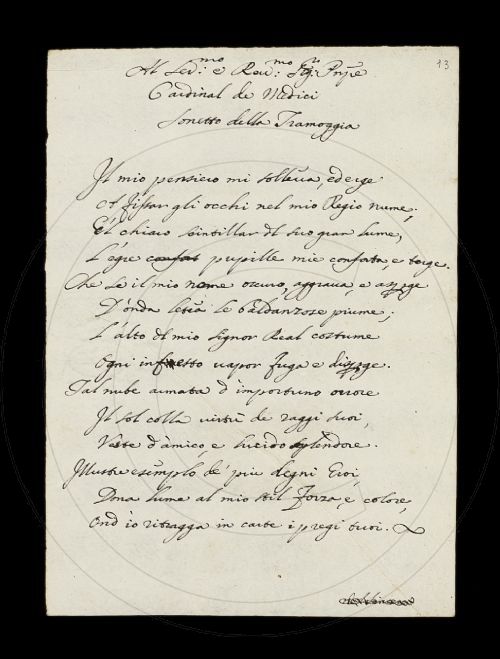 13
Al Ser:mo e Reu:mo Sig:r Pnpe
Cardinal de Medici
Sonetto della Tramoggia
Il mio pensiero mi solleua, ed erge
A fissar gli occhi nel mio Regio nume;
E'l chiaro scintillar dl suo gran lume,
L'egre pupille mie conforta, e terge.
Che se il mio nome oscuro, aggraua, e asperge
D'onda letea le baldanzose piume;
L'alto dl mio signor Real costume
Ogni infetto uapor fuga e disperge.
Tal nube armata d'importuno orrore
Il sol colla uirtù de raggi suoi,
Veste d'amico, e lucido splendore.
Illustre esemplo de' piu degni Eroi,
Dona lume al mio stil forza, e colore,
Ond'io ritragga in carte i pregi tuoi.